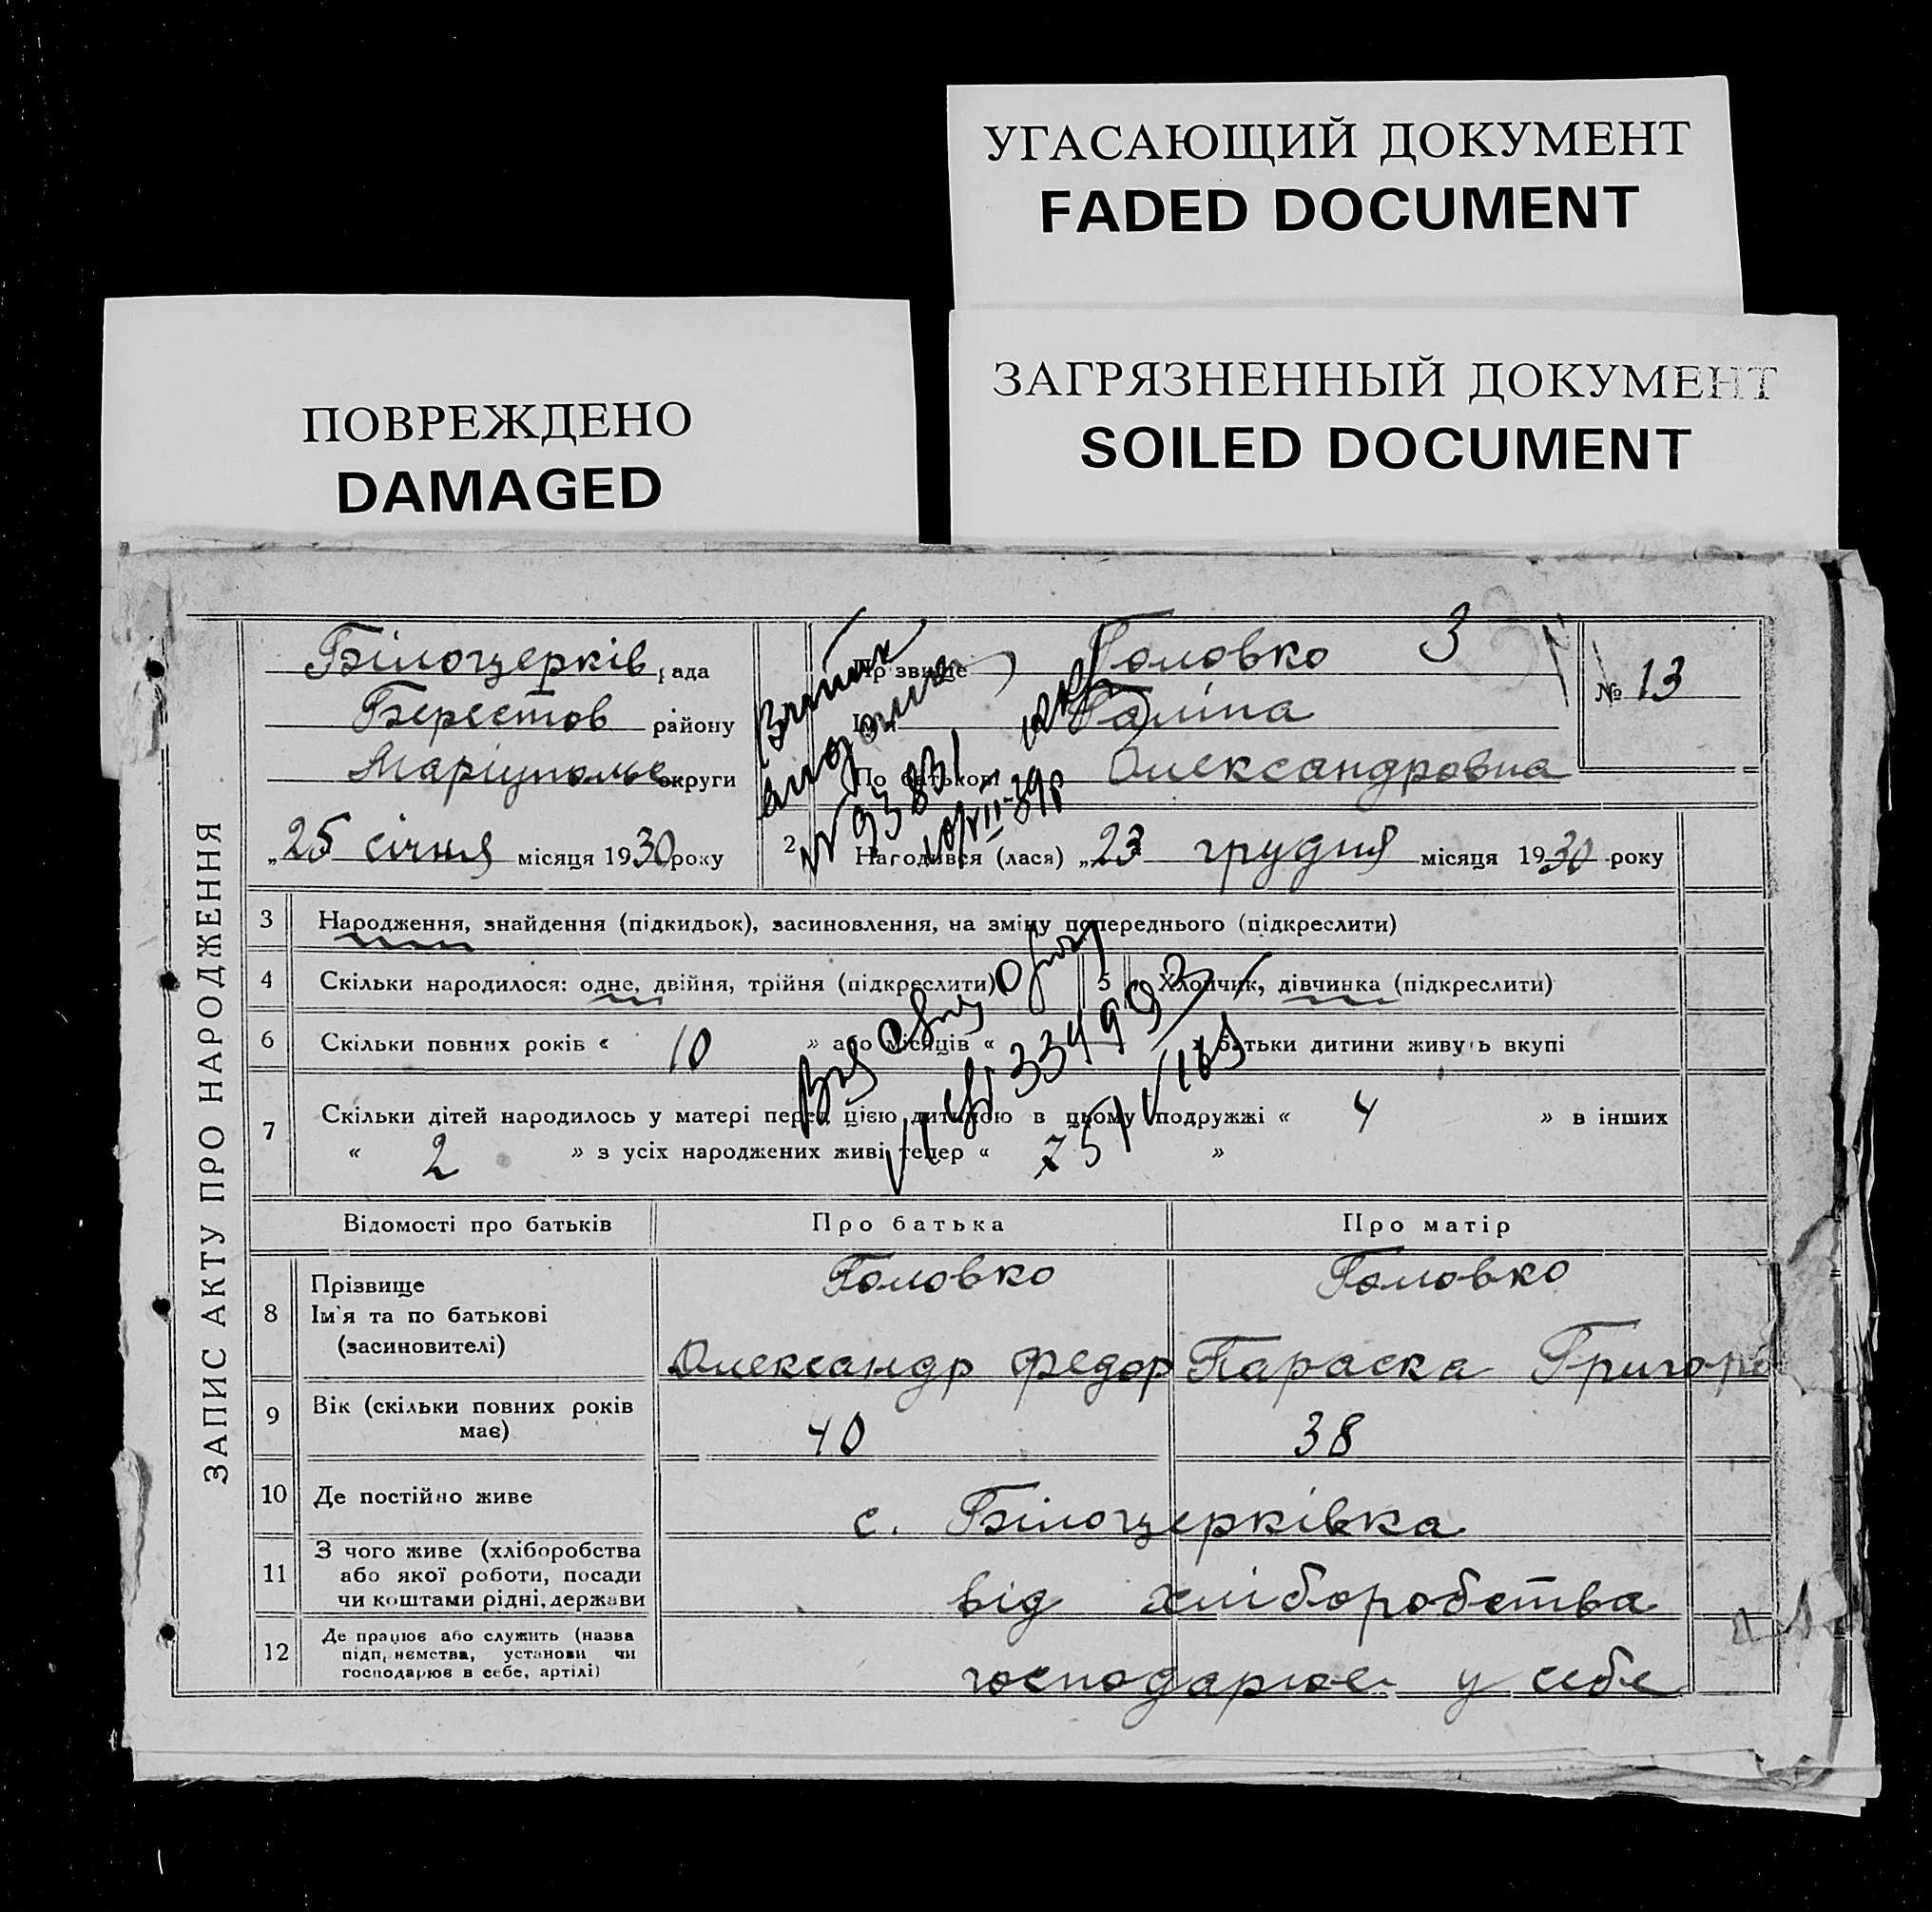 УГАСАЮЩИЙ ДОКУМЕНТ
FADED DOCUMENT
ЗАГРЯЗНЕННЫЙ ДОКУМЕНТ
SOILED DOCUMENT
ПОВРЕЖДЕНО
DAMAGED
ЗАПИС АКТУ ПРО НАРОДЖЕННЯ
Білоцерків рада
Берестов району
Маріупольс округи
„25 січня місяця 1930 року
Прізвище Головко 3
Галіна
По батькові Олександровна
№ 13
2 Народився (лася) „23 грудня місяця 1930 року
3 Народження, знайдення (підкидьок), засиновлення, на зміну попереднього (підкреслити)
4 Скільки народилося: одне, двійня, трійня (підкреслити) 5 Хлопчик, дівчинка (підкреслити)
6 Скільки повних років « 10 » або місяців « » батьки дитини живуть вкупі
7 Скільки дітей народилось у матері перед цією дитиною в цьому подружжі « 4 » в інших
« 2 » з усіх народжених живі тепер « »
Відомості про батьків Про батька Про матір
8 Прізвище Головко Головко
Ім'я та по батькові
(засиновителі) Олександр Федор Параска Григоро
9 Вік (скільки повних років має) 40 38
10 Де постійно живе с. Білоцерківка
11 З чого живе (хліборобства
або якої роботи, посади
чи коштами рідні, держави від хліборобства
12 Де працює або служить (назва
підприємства, установи чи
господарює в себе, артілі) господарює у себе